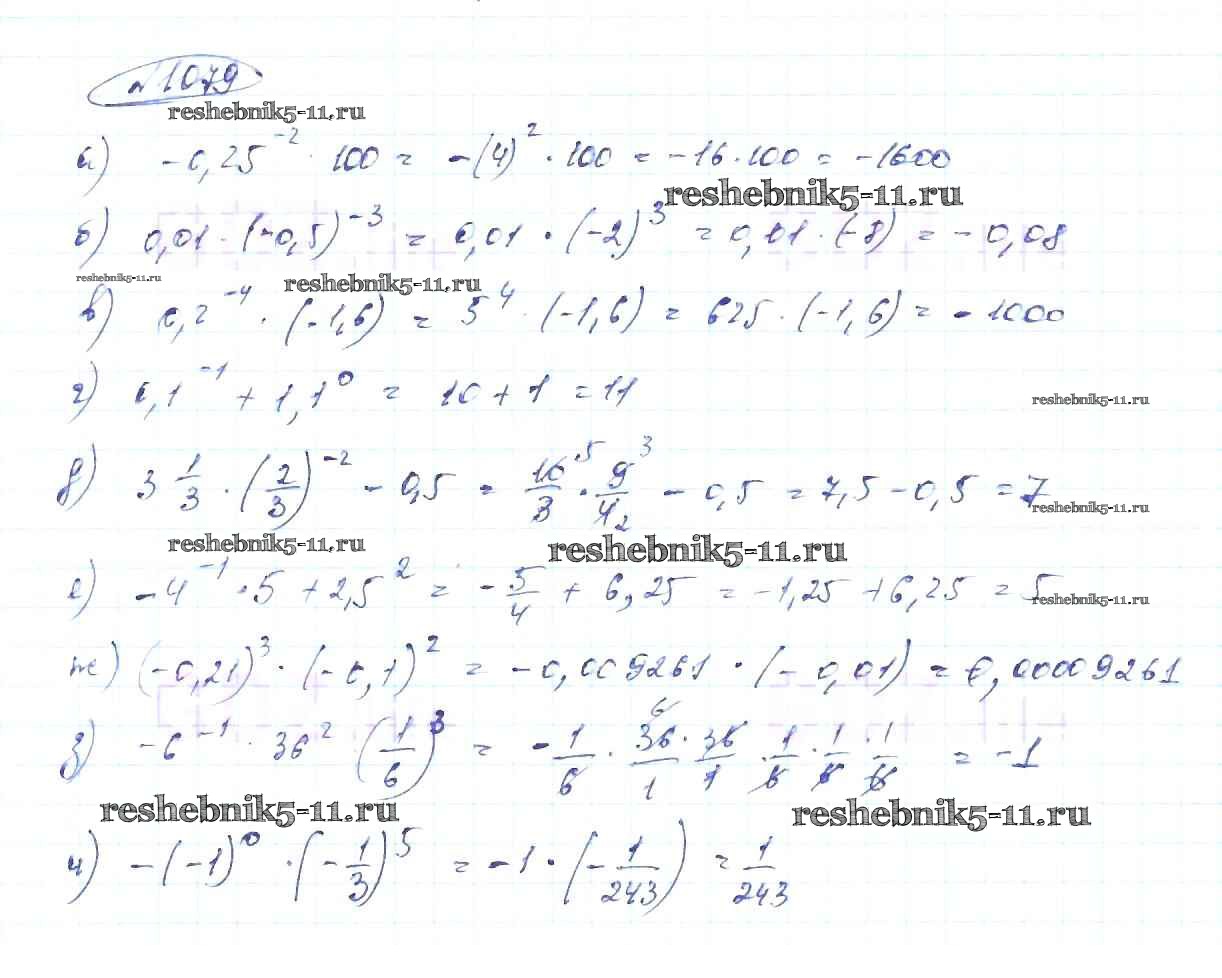 № 1079
reshebnik5-11.ru
а) -0,25^-2 · 100 = -(4)^2 · 100 = -16 · 100 = -1600
reshebnik5-11.ru
б) 0,01 · (-0,5)^-3 = 0,01 · (-2)^3 = 0,01 · (-8) = -0,08
reshebnik5-11.ru reshebnik5-11.ru
в) 0,2^-4 · (-1,6) = 5^4 · (-1,6) = 625 · (-1,6) = -1000
г) 0,1^-1 + 1,1^0 = 10 + 1 = 11
reshebnik5-11.ru
д) 3 1/3 · (2/3)^-2 - 0,5 = 10^5/3 · 9^3/4_2 - 0,5 = 7,5 - 0,5 = 7
reshebnik5-11.ru
reshebnik5-11.ru reshebnik5-11.ru
е) -4^-1 · 5 + 2,5^2 = -5/4 + 6,25 = -1,25 + 6,25 = 5
reshebnik5-11.ru
ж) (-0,21)^3 · (-0,1)^2 = -0,009261 · (-0,01) = 0,00009261
з) -6^-1 · 36^2 · (1/6)^3 = -1/6 · 36^6/1 · 36/1 · 1/6 · 1/6 · 1/6 = -1
reshebnik5-11.ru reshebnik5-11.ru
и) -(-1)^0 · (-1/3)^5 = -1 · (-1/243) = 1/243